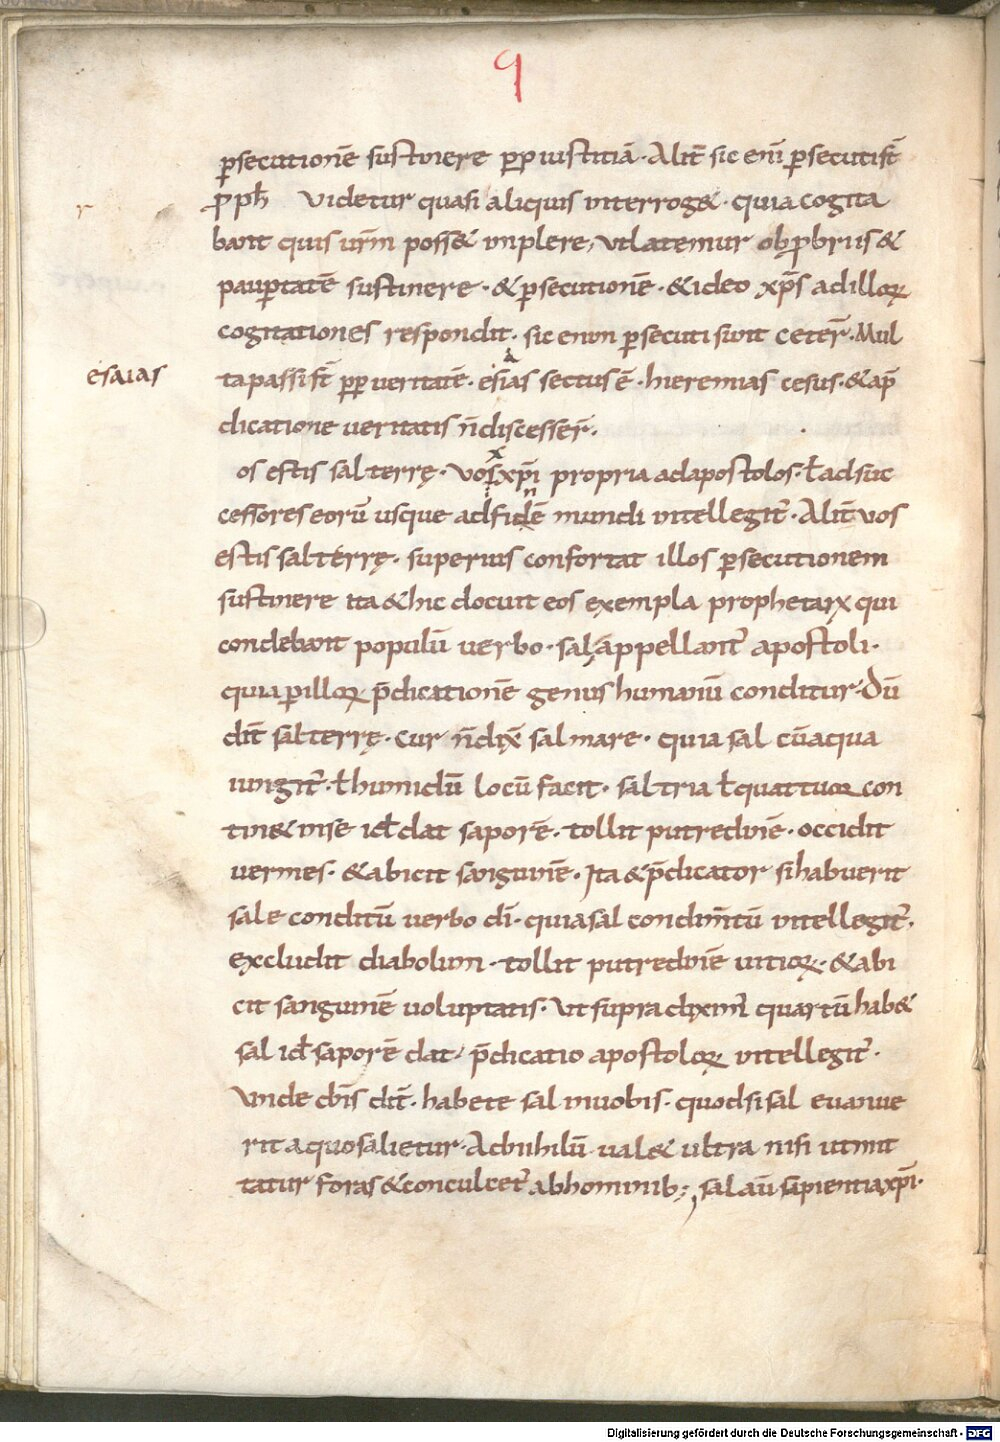 9
p̱secutionē sustinere pp̱ iustitiā. Alit̄ sic eni̅ p̱secuti st̄
p̱ph̄ Videtur quasi aliquis interrog&. quia cogita
bant quis ur̄m poss& implere, ut latemur obp̱brus &
paup̱tatē sustinere. & p̱secutionē. & ideo xp̄s ad illoꝝ
cogitationes respondit. sic enim p̱secuti sunt ceter̄. Mul
esaias
ta passi st̄ pp̱ ueritatē. esias sectus ē. hieremias cesus. & a p̄
a
dicatione ueritatis n̄ discesser̄.
os estis sal terrę. Vos xp̄i propria ad apostolos. ł ad suc
cessores eorū usque ad fidē mundi intellegit᷑. Alit̄ uos
n
estis sal terrę. superius confortat illos p̱secutionem
sustinere ita & hic docuit eos exempla prophetaꝝ qui
condebant populū uerbo. sal appellant᷑ apostoli.
quia p̱ illoꝝ p̄dicationē genus humanū conditur. Dū
dit̄ sal terrę. cur n̄ dix̄ sal mare. quia sal cū aqua
iungit᷑. ł humidū locū facit. sal tria ł quattuor con
tin& in se id̄ dat saporē. tollit putredinē. occidit
uermes. & abicit sanguinē. Ita & p̄dicator si habuerit
sale conditū uerbo dī. quia sal condim̄tū intellegit᷑.
excludit diabolum. tollit putredinē uitioꝝ. & abi
cit sanguinē uoluptatis. Ut supra dixim᷑ quartū hab&
sal id̄ saporē dat, p̄dicatio apostoloꝝ intellegit᷑.
Vnde dn̄s dit̄. habete sal in uobis. quod si sal euanue
rit a quo salietur. Ad nihilū ual& ultra nisi ut mit
tatur foras & conculcet᷑ ab hominib; sal aū sapientia xp̄i.
Digitalisierung gefördert durch die Deutsche Forschungsgemeinschaft - DFG